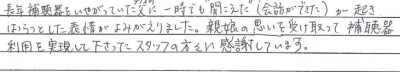 長年補聴器をいやがっていた父に一時でも聞こえた(会話ができた)が起き
ほらっとした表情がよみがえりました。親娘の思いを受け取って補聴器
利用を実現して下さったスタッフの方々に感謝しています。